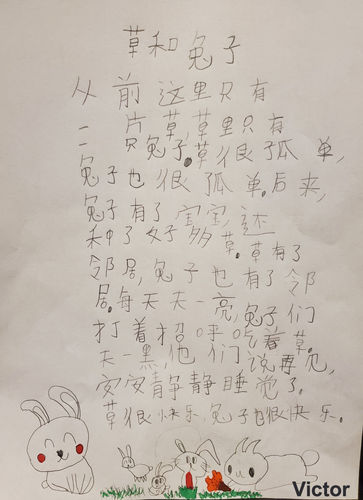 草和兔子
从前这里只有
一片草,草里只有
二只兔子。草很孤单,
兔子也很孤单。后来,
兔子有了宝宝,还
种了好多草。草有了
邻居,兔子也有了邻
居。每天天一亮,兔子们
打着招呼吃着草。
天一黑,他们说再见,
安安静静睡觉了。
草很快乐,兔子也很快乐。
Victor